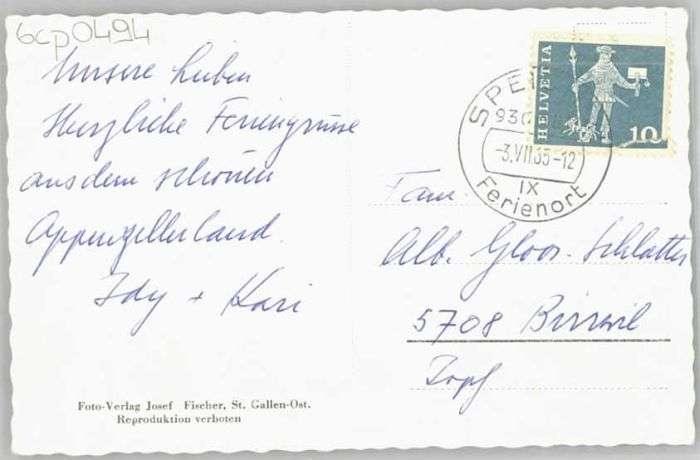 6cp0494
Unsere Lieben
Herzliche Feriengrüsse
aus dem schönen
Appenzellerland.
Idy + Kari
Foto-Verlag Josef Fischer, St. Gallen-Ost.
Reproduktion verboten
HELVETIA
10
SPE
930
-3.VII.65-12
IX
Ferienort
Fam.
Alb. Gloor-Schlatter
5708 Birrwil
Zopf